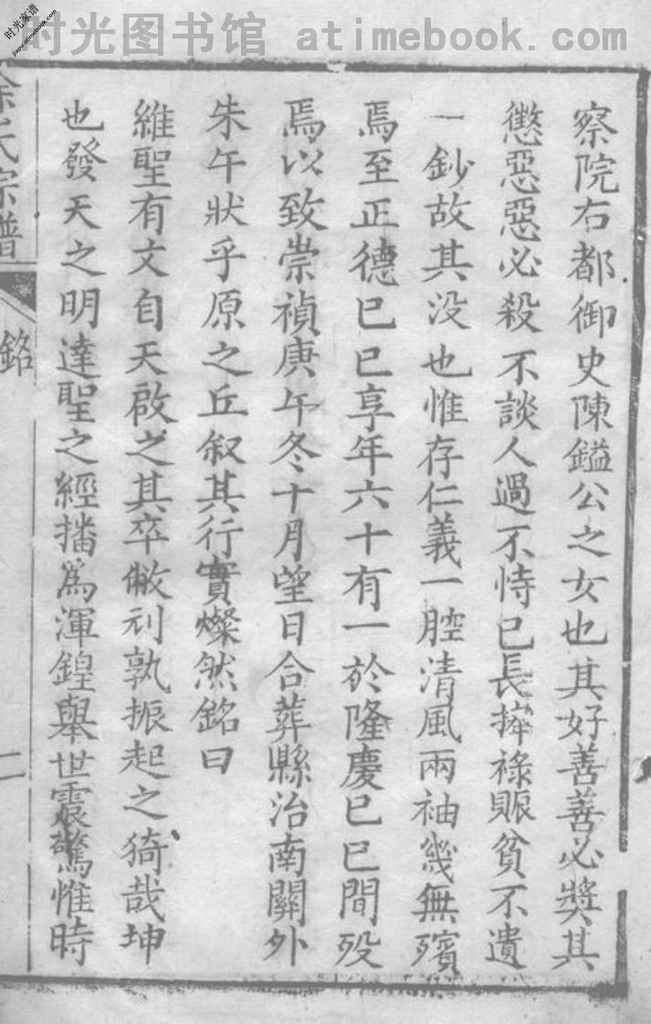 时光图书馆 atimebook.com
察院右都御史陳鎰公之女也其好善善必獎其
懲惡惡必殺不談人過不恃己長捹祿賑貧不遺
一鈔故其没也惟存仁義一腔清風兩袖幾無殯
焉至正德巳巳享年六十有一於隆慶巳巳間殁
焉以致崇禎庚午冬十月望日合葬縣治南關外
朱午狀乎原之丘叙其行實燦然銘曰
維聖有文自天啟之其卒敝刓孰振起之猗哉坤
也發天之明達聖之經播為渾鍠舉世震驚惟時
徐氏宗譜
銘
二